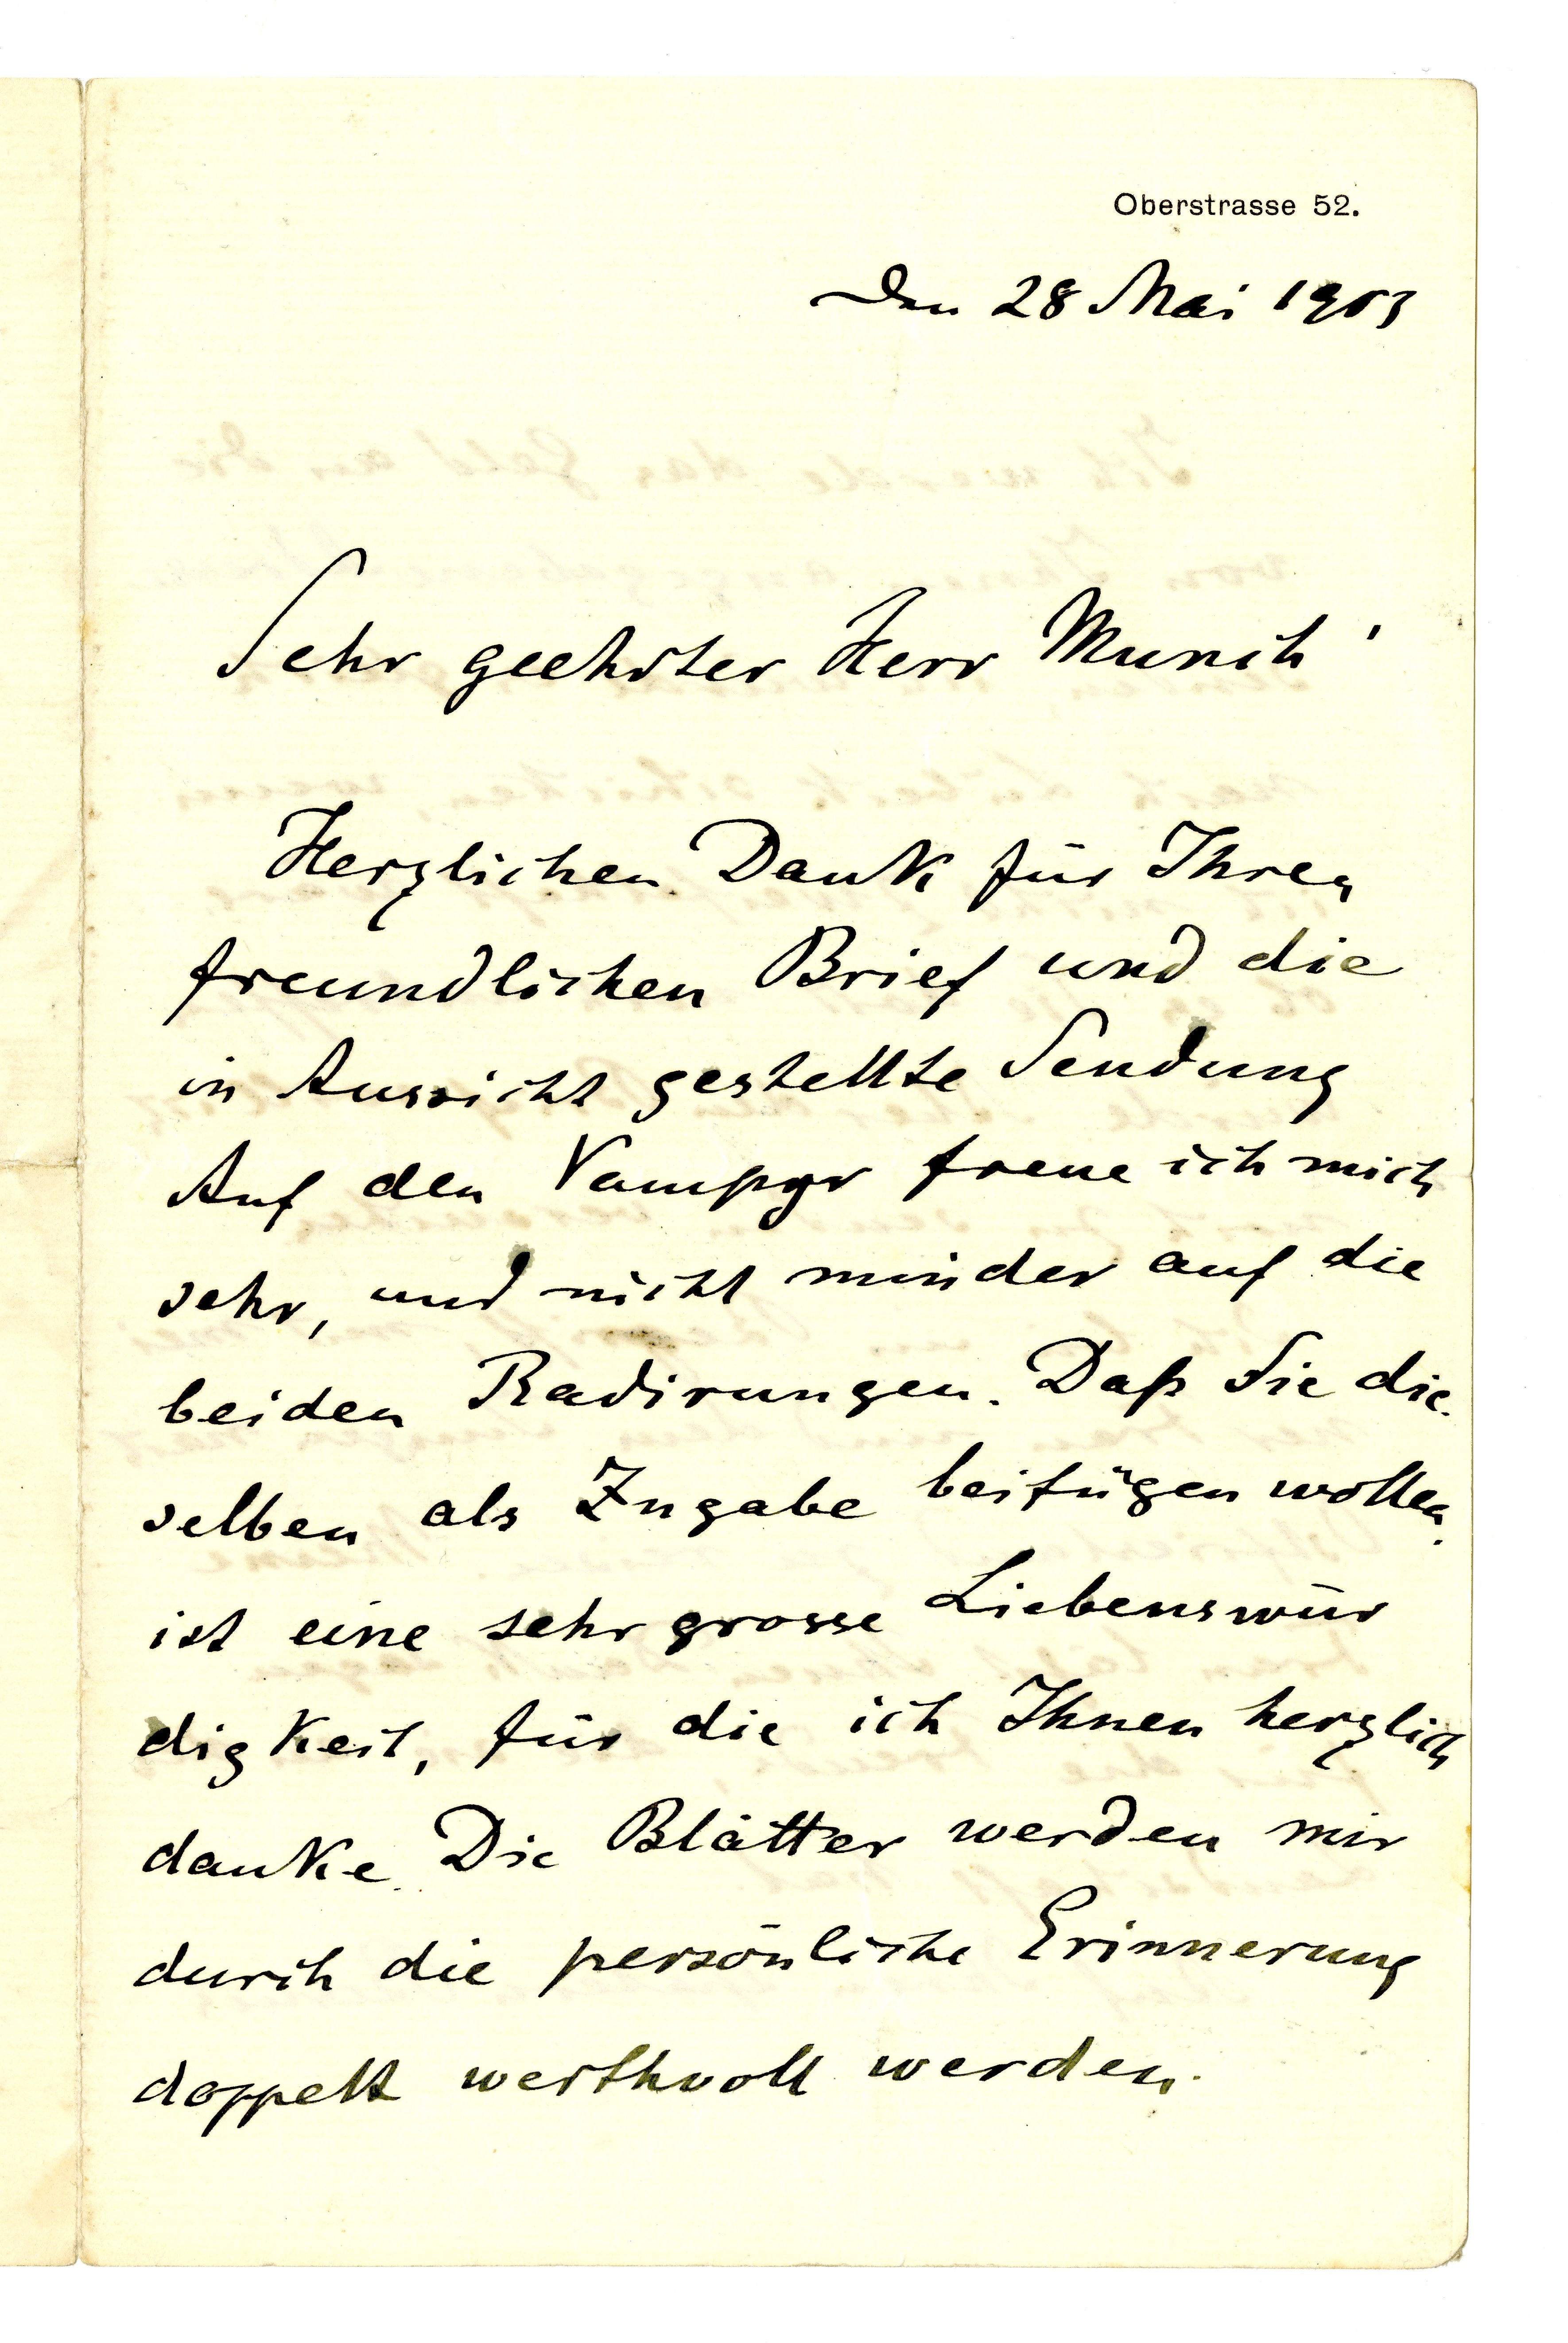 Oberstrasse 52.
Den 28 Mai 1903
Sehr geehrter Herr Munch!
Herzlichen Dank für Ihren
freundlichen Brief und die
in Aussicht gestellte Sendung
Auf den Vampyr freue ich mich
sehr, und nicht minder auf die
beiden Radirungen. Daß Sie die
selben als Zugabe beifügen wollen
ist eine sehr grosse Liebenswür
digkeit, für die ich Ihnen herzlich
danke. Die Blätter werden mir
durch die persönliche Erinnerung
doppelt werthvoll werden.